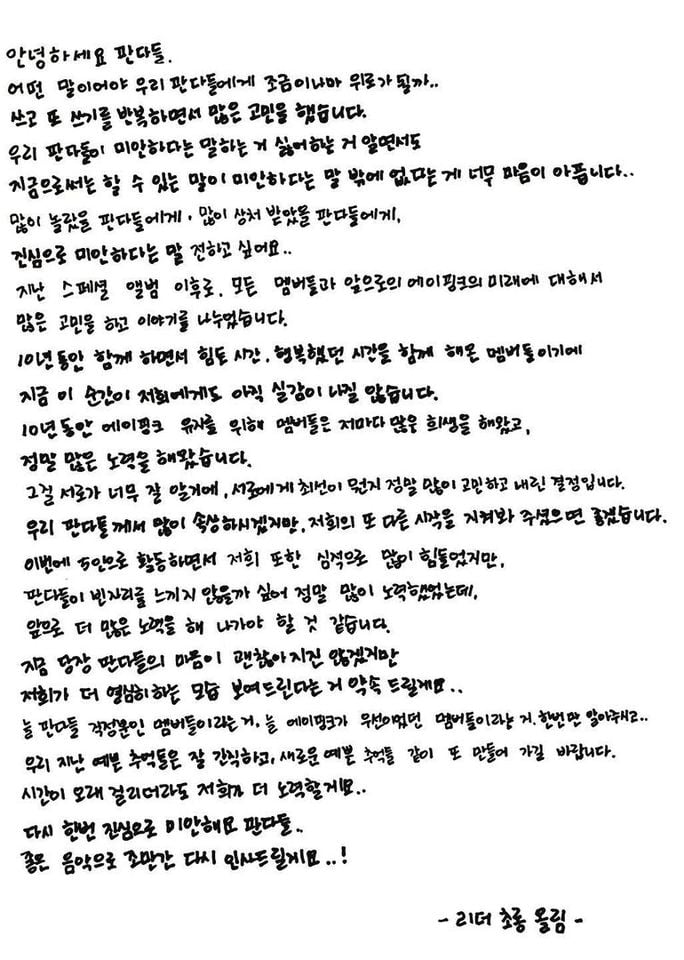 안녕하세요 판다들.
어떤 말이어야 우리 판다들에게 조금이나마 위로가 될까..
쓰고 또 쓰기를 반복하면서 많은 고민을 했습니다.
우리 판다들이 미안하다는 말하는 거 싫어하는 거 알면서도
지금으로써는 할 수 있는 말이 미안하다는 말 밖에 없다는 게 너무 마음이 아픕니다..
많이 놀랐을 판다들에게, 많이 상처 받았을 판다들에게,
진심으로 미안하다는 말 전하고 싶어요..
지난 스페셜 앨범 이후로, 모든 멤버들과 앞으로의 에이핑크의 미래에 대해서
많은 고민을 하고 이야기를 나누었습니다.
10년동안 함께 하면서 힘든 시간, 행복했던 시간을 함께 해온 멤버들이기에
지금 이 순간이 저희에게도 아직 실감이 나질 않습니다.
10년동안 에이핑크 유지를 위해 멤버들은 저마다 많은 희생을 해왔고,
정말 많은 노력을 해왔습니다.
그걸 서로가 너무 잘 알기에, 서로에게 최선이 뭔지 정말 많이 고민하고 내린 결정입니다.
우리 판다들께서 많이 속상하시겠지만, 저희의 또 다른 시작을 지켜봐 주셨으면 좋겠습니다.
이번에 5인으로 활동하면서 저희 또한 심적으로 많이 힘들었지만,
판다들이 빈자리를 느끼지 않을까 싶어 정말 많이 노력했었는데,
앞으로 더 많은 노력을 해 나가야 할 것 같습니다.
지금 당장 판다들의 마음이 괜찮아지진 않겠지만
저희가 더 열심히하는 모습 보여드린다는 거 약속 드릴게요..
늘 판다들 걱정뿐인 멤버들이라는 거, 늘 에이핑크가 우선이었던 멤버들이라는 거, 한번만 알아주세요..
우리 지난 예쁜 추억들은 잘 간직하고, 새로운 예쁜 추억들 같이 또 만들어 가길 바랍니다.
시간이 오래 걸리더라도 저희가 더 노력할게요..
다시 한번 진심으로 미안해요 판다들..
좋은 음악으로 조만간 다시 인사드릴게요..!
- 리더 초롱 올림 -